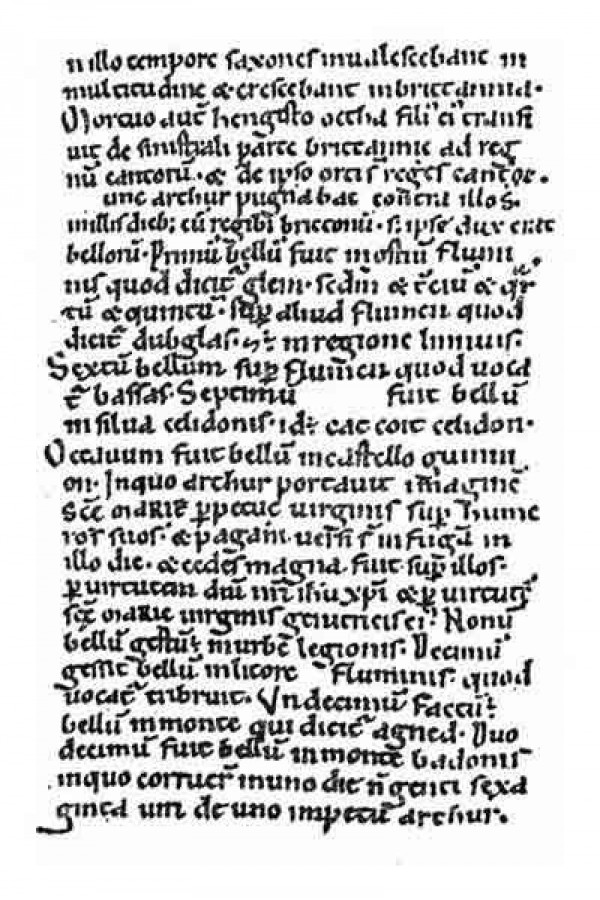 n illo tempore saxones inualescebant in
multitudine & crescebant in brittannia·
Mortuo aut̄ hengisto octha fili' ei' transi
uit de sinistrali parte brittannie ad reg
nū cantorū·& de ipso orti s̄ reges cantor·
unc arthur pugnabat contra illos·
in illis dieb; cū regib; brittonū· s; ipse dux erat
bellorū· Primū bellū fuit in ostiū flumi
nis quod dicit̄ glein· secdm̄ & t̄ciū & q̄r
tū & quintū· sup̄ aliud flumen quod
dicit̄ dubglas· in regione linnuis·
Sextū bellum sup̄ flumen quod uoca
t̄ bassas· Septimū fuit bellū
in silua celidonis· id; cat coit celidon·
Octauum fuit bellū in castello guinni
on· In quo arthur portauit imaginē
scē mariē p̱petuę uirginis sup̄ hume
ros suos· & pagani uersi s̄ in fugā in
illo die· & cedes magna fuit sup̄ illos·
p̱ uirtutem dn̄i nr̄i ihū xp̄i & p̱ uirtutē
scē mariē uirginis genitricis ei'· Nonū
bellū gestū; in urbe legionis· Decimū
gessit bellū in litore fluminis· quod
uocat̄ tribruit· Undecimū factū;
bellū in monte qui dicit̄ agned· Duo
decimū fuit bellū in monte badonis
in quo corruer̄ in uno die n̄genti sexa
ginta uiri de uno impetu arthur·